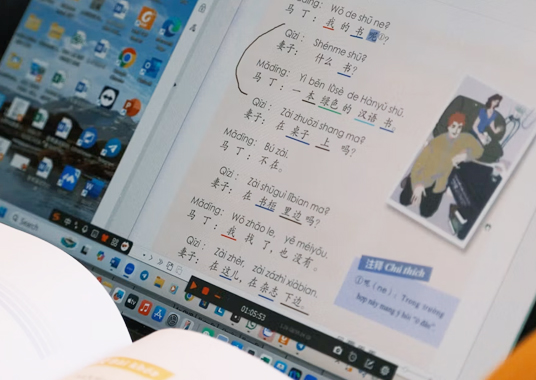 Mǎdīng: Wǒ de shū ne?
马丁：我的书呢①?
Qīzi: Shénme shū?
妻子：什么书?
Mǎdīng: Yì běn lǜsè de Hànyǔ shū.
马丁：一本绿色的汉语书。
Qīzi: Zài zhuōzi shang ma?
妻子：在桌子上吗?
Mǎdīng: Bú zài.
马丁：不在。
Qīzi: Zài shūguì lǐbian ma?
妻子：在书柜里边吗?
Mǎdīng: Wǒ zhǎo le, yě méiyǒu.
马丁：我找了，也没有。
Qīzi: Zài zhèr, zài zázhì xiàbian.
妻子：在这儿，在杂志下边。
注释 Chú thích
①呢 (ne): Trong trường
hợp này mang ý hỏi "ở đâu"
Search
01:05:53